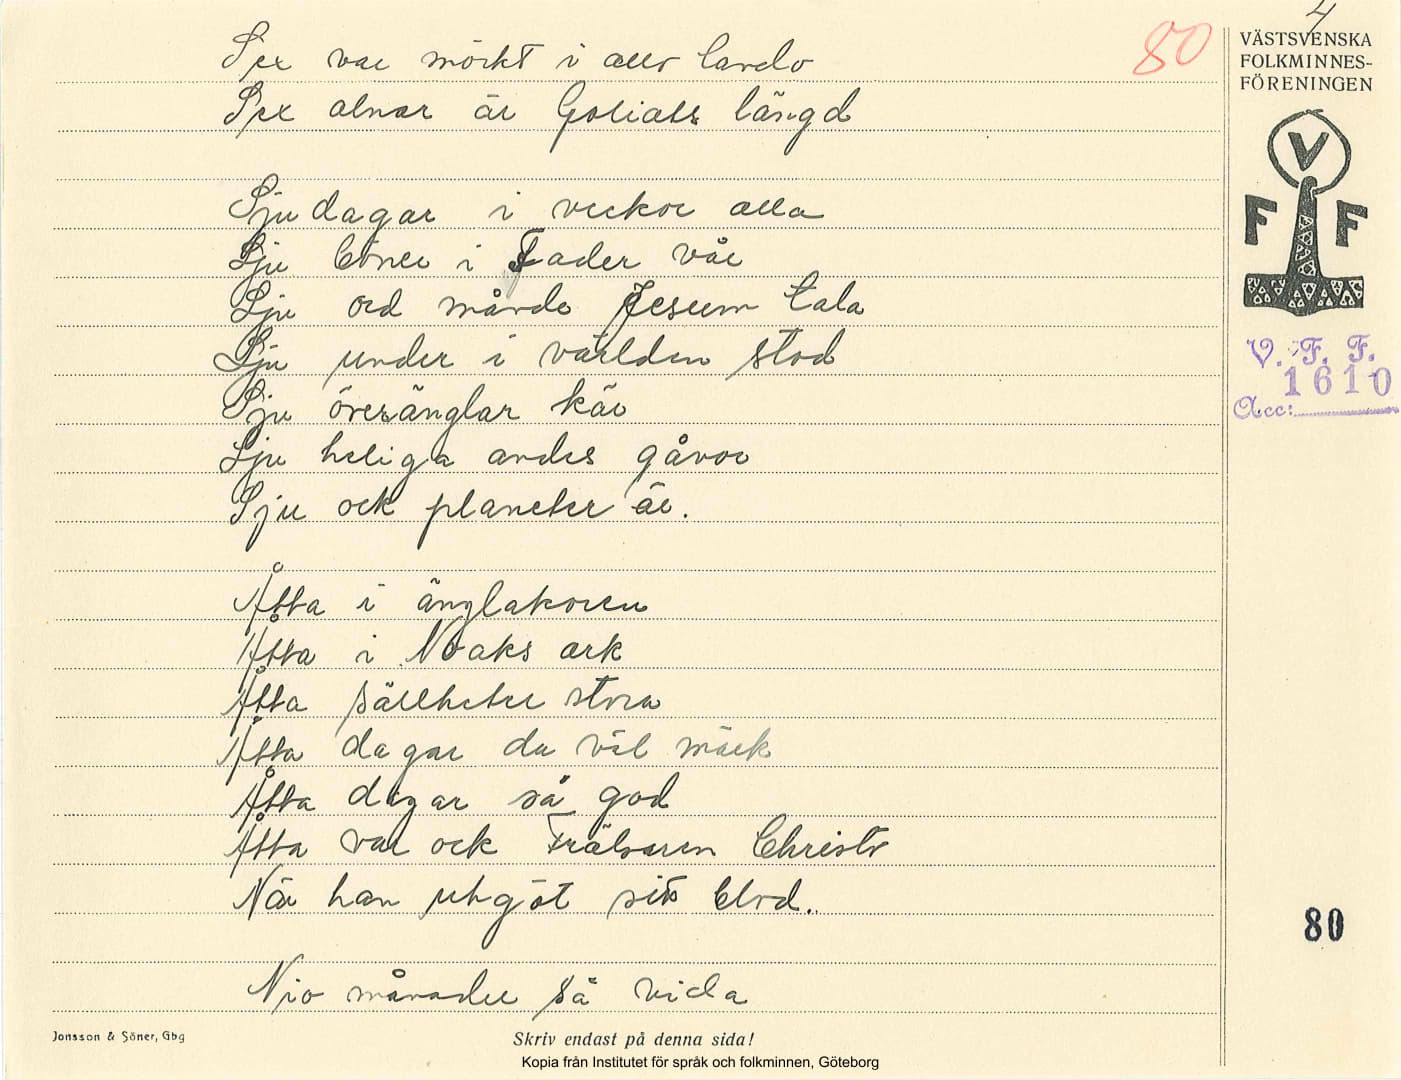 4
80
VÄSTSVENSKA
FOLKMINNES-
FÖRENINGEN
V
F F
V. F. F.
1610
Acc:
Sex var mörkt i allo lando
Sex alnar är Goliats längd
Sju dagar i veckor alla
Sju böner i Fader vår
Sju ord månde Jesum tala
Sju under i världen stod
Sju överänglar här
Sju heliga andes gåvor
Sju ock planeter är.
Åtta i änglakoren
Åtta i Noaks ark
Åtta sällheter stora
Åtta dagar du väl märk
Åtta dagar så god
Åtta var ock Frälsaren Christi
När han utgöt sitt blod.
Nio månader så vida
80
Jonsson & Söner, Gbg
Skriv endast på denna sida!
Kopia från Institutet för språk och folkminnen, Göteborg